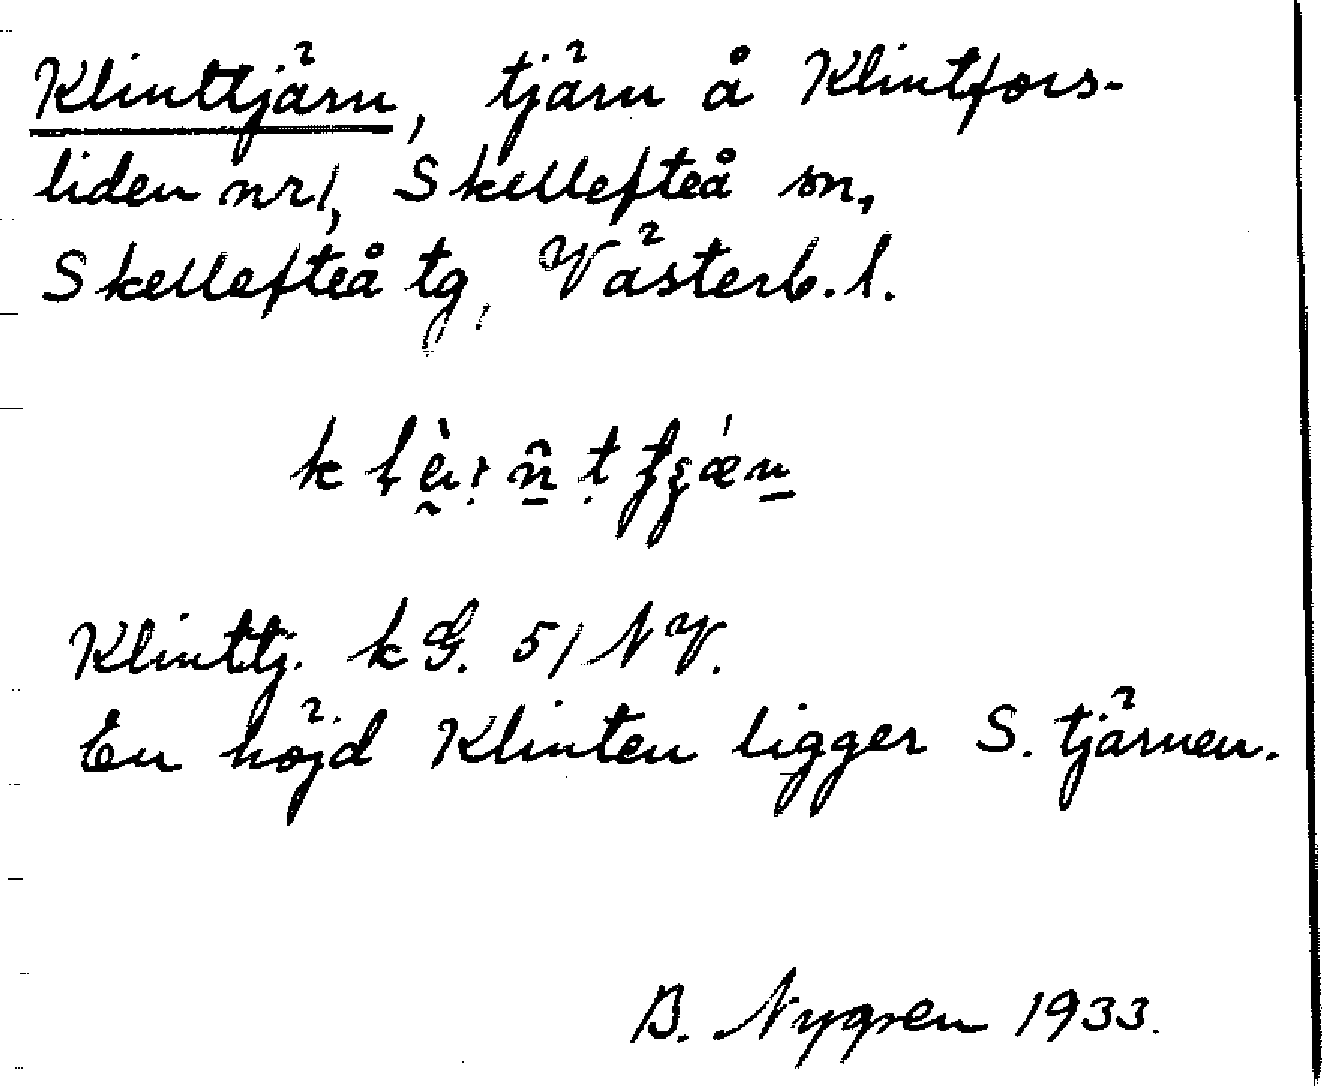 Klinttjärn, tjärn å Klintfors-
liden nr 1, Skellefteå sn,
Skellefteå tg, Västerb. l.
Klinttj. k G. 51 NV.
En höjd Klinten ligger S. tjärnen.
B. Nygren 1933.